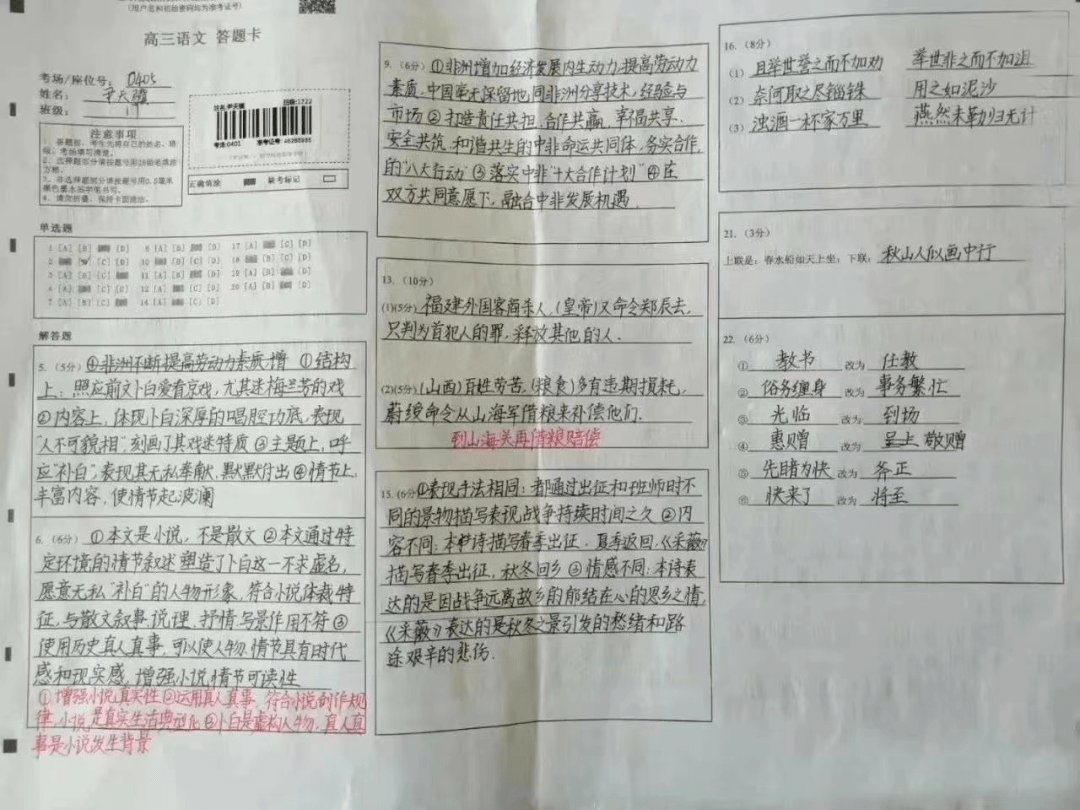 (用户名和初始密码均为准考证号)
高三语文 答题卡
考场/座位号: 0405
姓名:
班级: 17
注意事项
正确填涂
缺考标记
单选题
解答题
5. (5分) ④非洲不断提高劳动力素质,增 ①结构
上: 照应前文卜白爱看京戏, 尤其迷梅兰芳的戏
②内容上, 体现卜白深厚的唱腔功底, 表现
"人不可貌相", 刻画了其戏迷特质 ③主题上, 呼
应"补白", 表现其无私奉献, 默默付出 ④情节上,
丰富内容, 使情节起波澜
6. (6分) ①本文是小说, 不是散文 ②本文通过特
定环境的情节叙述 塑造了卜白这一不求虚名,
愿意无私"补白"的人物形象, 符合小说体裁特
征, 与散文叙事、说理、抒情、写景作用不符 ③
使用历史真人真事, 可以使人物、情节具有时代
感和现实感, 增强小说情节可读性
①增强小说真实性 ②运用真人真事, 符合小说创作规
律, 小说是真实生活典型化 ③卜白是虚构人物, 真人真
事是小说发生背景
9. (6分) ①非洲增加经济发展内生动力,提高劳动力
素质, 中国毫无保留地同非洲分享技术, 经验与
市场 ②打造责任共担, 合作共赢, 幸福共享,
安全共筑, 和谐共生的中非命运共同体, 务实合作
的"八大行动" ③落实中非"十大合作计划" ④在
双方共同意愿下, 融合中非发展机遇.
13. (10分)
(1)(5分) 福建外国客商杀人, (皇帝)又命令郑辰去,
只判为首犯人的罪, 释放其他的人.
(2)(5分) (山西)百姓劳苦, (粮食)多有违期损耗,
蔚绶命令从山海军借粮来补偿他们.
到山海关再借粮赔偿
15. (6分) ①表现手法相同: 都通过出征和班师时不
同的景物描写表现战争持续时间之久 ②内
容不同: 本诗描写春季出征, 夏季返回, 《采薇》
描写春季出征, 秋冬回乡 ③情感不同: 本诗表
达的是因战争远离故乡的郁结在心的思乡之情,
《采薇》表达的是秋冬之景引发的愁绪和路
途艰辛的悲伤.
16. (8分)
(1) 且举世誉之而不加劝 举世非之而不加沮
(2) 奈何取之尽锱铢 用之如泥沙
(3) 浊酒一杯家万里 燕然未勒归无计
21. (3分)
上联是: 春水船如天上坐; 下联: 秋山人似画中行
22. (6分)
① 教书 改为 任教
② 俗务缠身 改为 事务繁忙
③ 光临 改为 到场
④ 惠赠 改为 呈上 敬赠
⑤ 先睹为快 改为 斧正
⑥ 快来了 改为 将至